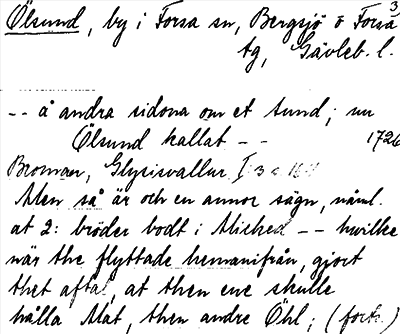 3
Ölsund, by i Forsa sn, Bergsjö o Forsa
tg, Gävleb. l.
-- å andra sidona om et sund; nu
Ölsund kallat -- 1726
Broman, Glysisvallur I
Men så är och en annor sägn, näml.
at 2: bröder bodt i Alsched -- hwilke
när the flyttade hemanifrån, giort
thet aftal, at then ene skulle
hålla Alat, then andre Öhl; (forts.)